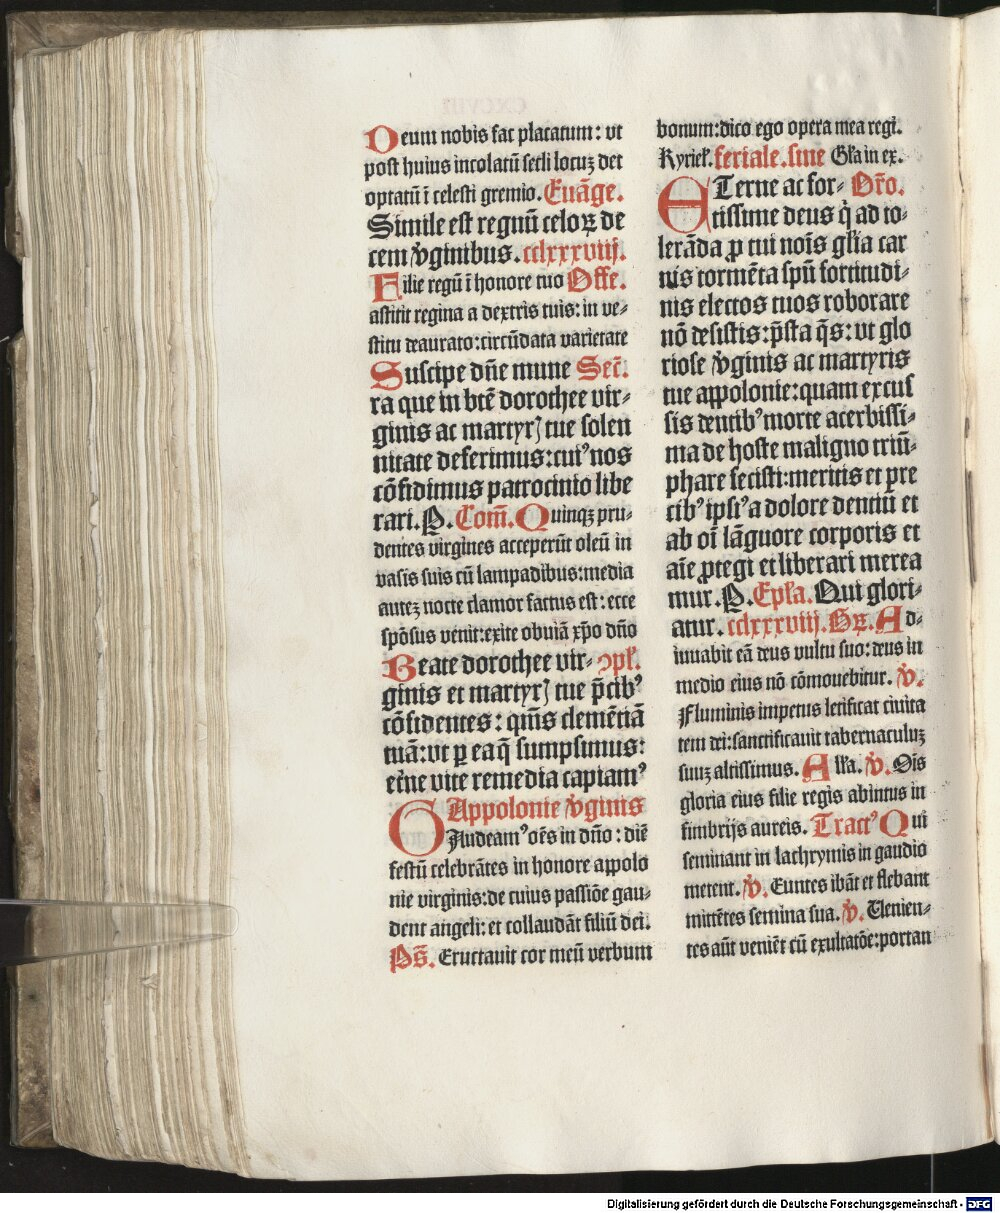 Deum nobis fac placatum: vt
post huius incolatū secli locuꝫ det
optatū ī celesti gremio. Euāge.
Simile est regnū celoꝝ de
cem v̓ginibus. cclxxxviij.
Filie regū ī honore tuo Offe.
astitit regina a dextris tuis: in ve-
stitu deaurato: circūdata varietate
Suscipe dn̄e mune Secꝛ̄.
ra que in btē dorothee vir-
ginis ac martyrꝭ tue solen
nitate deferimus: cuiꝰ nos
cōfidimus patrocinio libe
rari. P. Com̄. Quinqꝫ pru-
dentes virgines acceperūt oleū in
vasis suis cū lampadibus: media
auteꝫ nocte clamor factus est: ecce
spōsus venit: exite obuiā xp̄o dn̄o
Beate dorothee vir- ꝯpl̄.
ginis et martyrꝭ tue p̄cibꝰ
cōfidentes: qm̄s clemētiā
tuā: vt ꝑ ea q̄ sumpsimus:
et̓ne vite remedia capiamꝰ
Appolonie v̓ginis
Gaudeamꝰ oēs in dn̄o: diē
festū celebrātes in honore appolo
nie virginis: de cuius passiōe gau-
dent angeli: et collaudāt filiū dei.
Ps̄. Eructauit cor meū verbum
bonum: dico ego opera mea regi.
Kyriel̓. feriale. sine Gl̓a in ex.
ETerne ac for- Or̄o.
tissime deus q̇ ad to-
lerāda ꝓ tui nois̄ gl̓ia car
nis tormēta spū fortitudi-
nis electos tuos roborare
nō desistis: p̄sta q̄s: vt glo
riose v̓ginis ac martyris
tue appolonie: quam excus
sis dentibꝰ morte acerbissi-
ma de hoste maligno triū-
phare fecisti: meritis et pre
cibꝰ ipsiꝰ a dolore dentiū et
ab oī lāguore corporis et
aīe ꝓtegi et liberari merea
mur. P. Epl̓a. Qui glori-
atur. cclxxxviij. Gꝝ. Ad-
iuuabit eā deus vultu suo: deus in
medio eius nō cōmouebitur. v̓.
Fluminis impetus letificat ciuita
tem dei: sanctificauit tabernaculuꝫ
suuꝫ altissimus. Alla. v̓. Oīs
gloria eius filie regis abintus in
fimbrijs aureis. Tractꝰ Qui
seminant in lachrymis in gaudio
metent. v̓. Euntes ibāt et flebant
mittētes semina sua. v̓. Uenien-
tes aūt veniēt cū exultatōe: portan
Digitalisierung gefördert durch die Deutsche Forschungsgemeinschaft - DFG